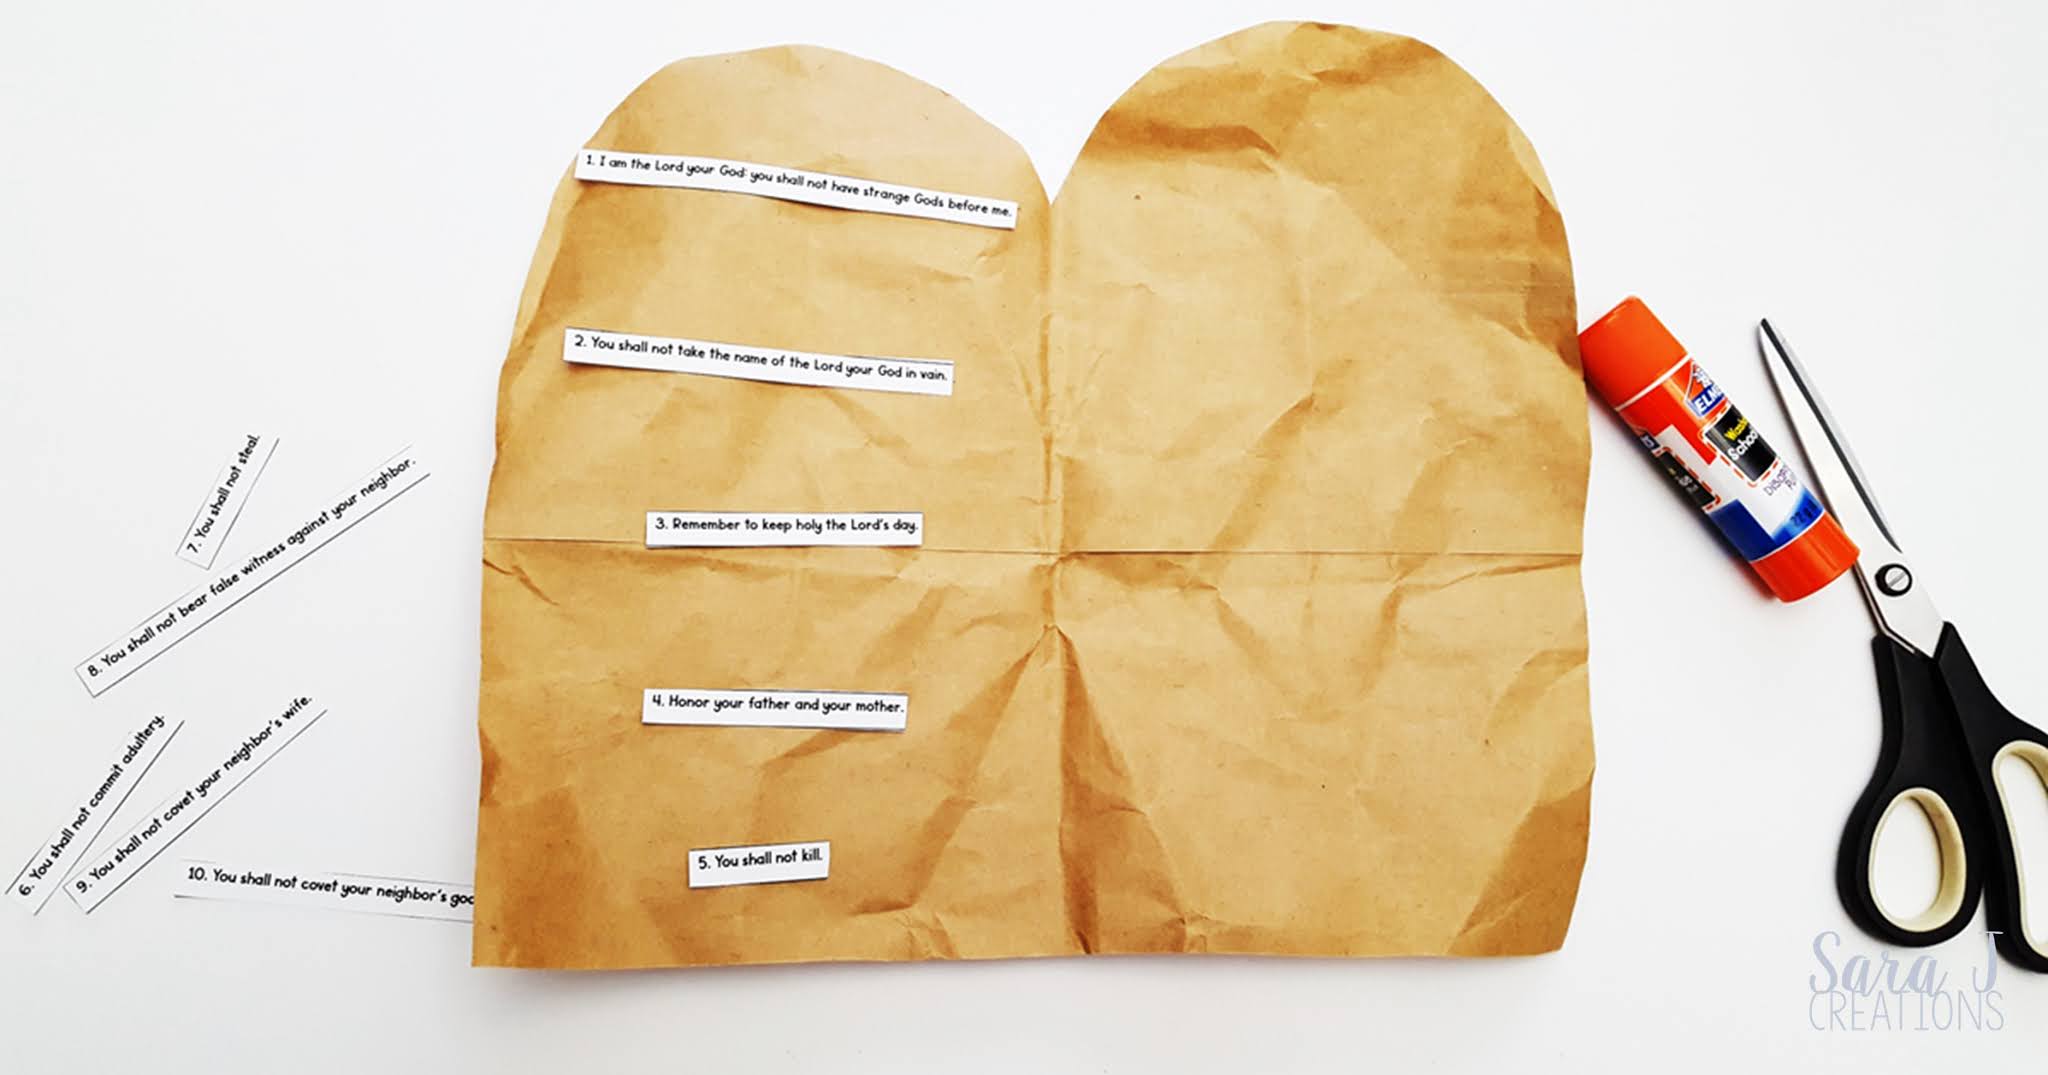 1. I am the Lord your God: you shall not have strange Gods before me.
2. You shall not take the name of the Lord your God in vain.
3. Remember to keep holy the Lord's day.
4. Honor your father and your mother.
5. You shall not kill.
7. You shall not steal.
8. You shall not bear false witness against your neighbor.
6. You shall not commit adultery.
9. You shall not covet your neighbor's wife.
10. You shall not covet your neighbor's
School
Sara J
CREATIONS